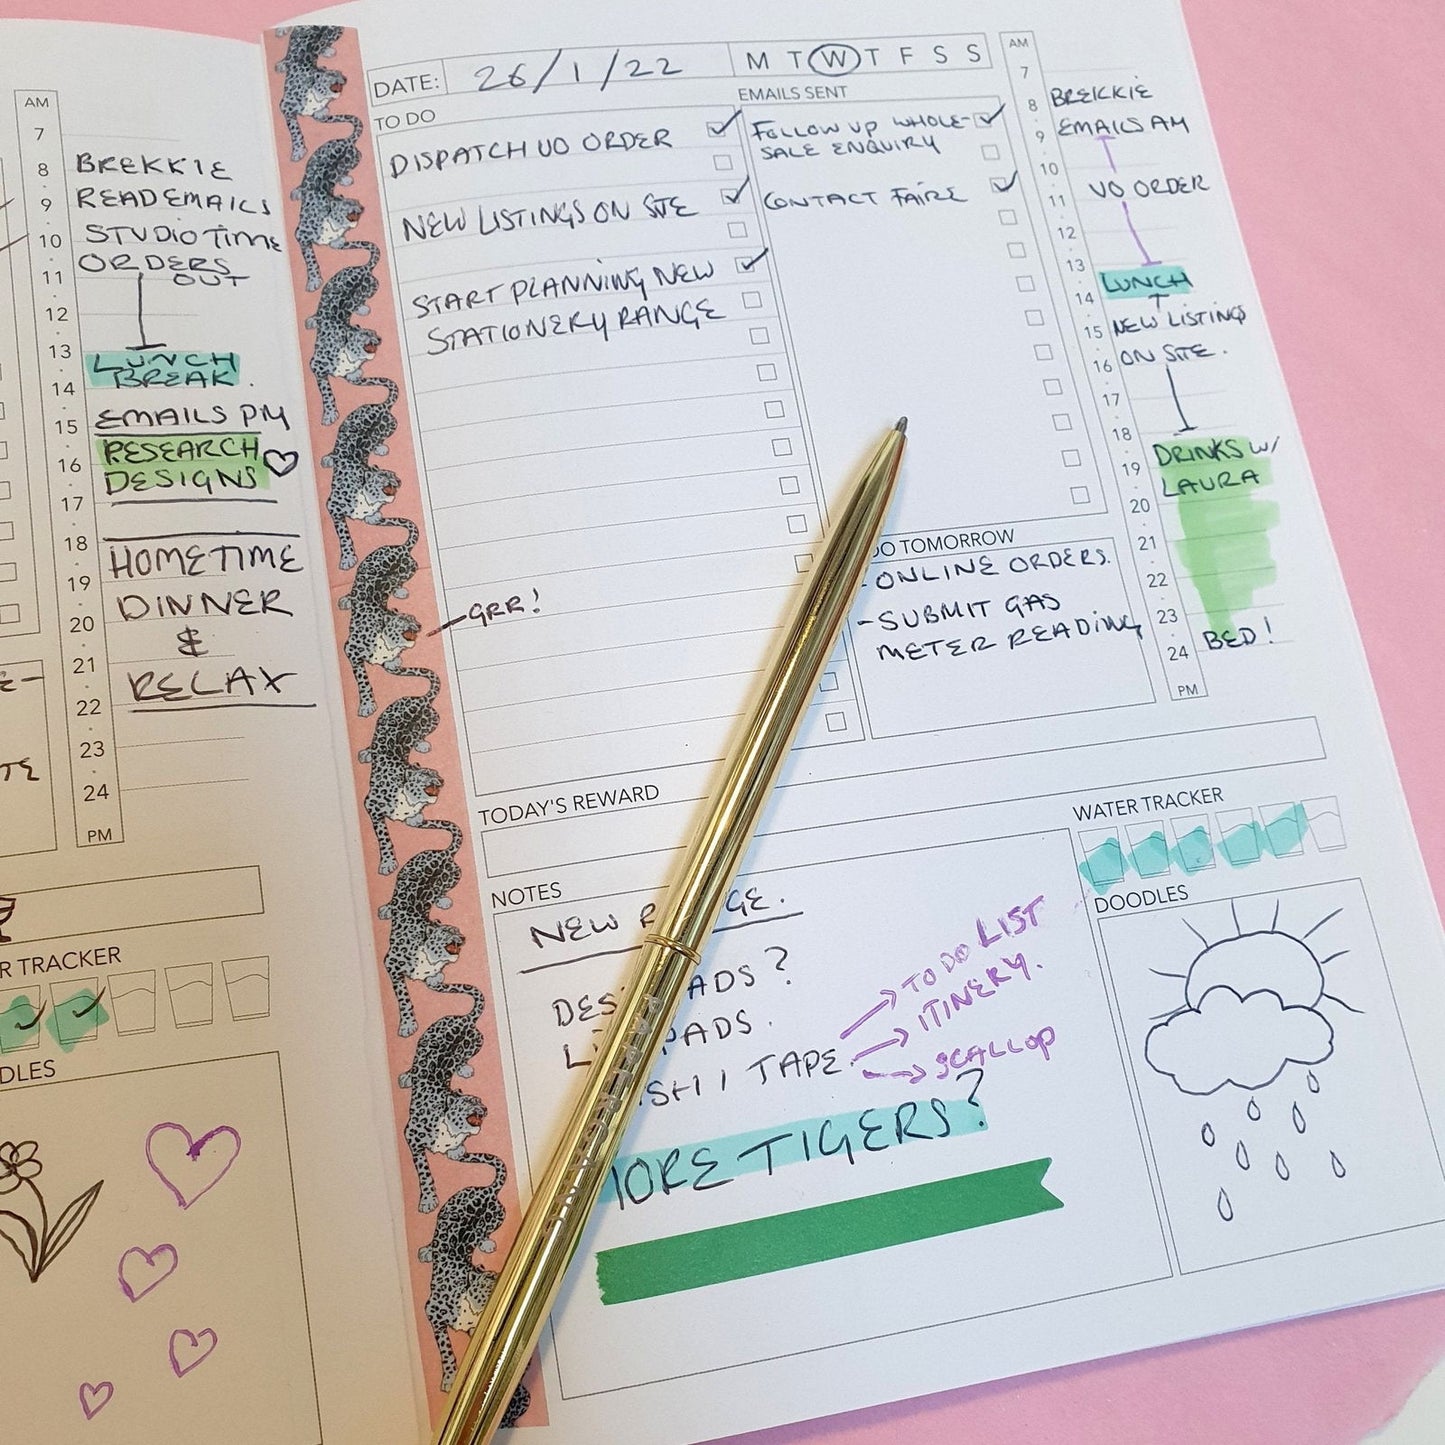 AM
7
8
9
10
11
12
13
14
15
16
17
18
19
20
21
22
23
24
PM
BREKKIE
READ EMAILS
STUDIO TIME
ORDERS
OUT
LUNCH
BREAK.
EMAILS PM
RESEARCH
DESIGNS
HOMETIME
DINNER
&
RELAX
R TRACKER
DLES
DATE: 26/1/22 M T W T F S S
TO DO
DISPATCH UO ORDER
NEW LISTINGS ON SITE
START PLANNING NEW
STATIONERY RANGE
GRR!
EMAILS SENT
FOLLOW UP WHOLE-
SALE ENQUIRY
CONTACT FAIRE
DO TOMORROW
- ONLINE ORDERS.
- SUBMIT GAS
METER READING
AM
7
8
9
10
11
12
13
14
15
16
17
18
19
20
21
22
23
24
PM
BREKKIE
EMAILS AM
UO ORDER
LUNCH
NEW LISTINGS
ON SITE.
DRINKS W/
LAURA
BED!
TODAY'S REWARD
WATER TRACKER
NOTES
NEW R GE.
DES ADS?
PADS.
SHI TAPE
TO DO LIST
ITINERY.
SCALLOP
MORE TIGERS?
DOODLES